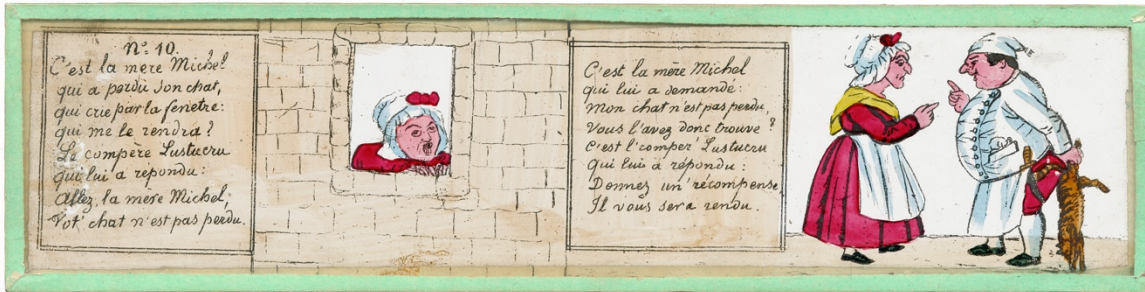 Nº 10.
C'est la mère Michel
qui a perdu son chat,
qui crie par la fenêtre:
qui me le rendra?
Le compère Lustucru
qui lui a répondu:
Allez, la mère Michel,
Vot' chat n'est pas perdu.
C'est la mère Michel
qui lui a demandé:
mon chat n'est pas perdu,
Vous l'avez donc trouvé?
C'est l'comper' Lustucru
Qui lui a répondu:
Donnez un' récompense
Il vous sera rendu